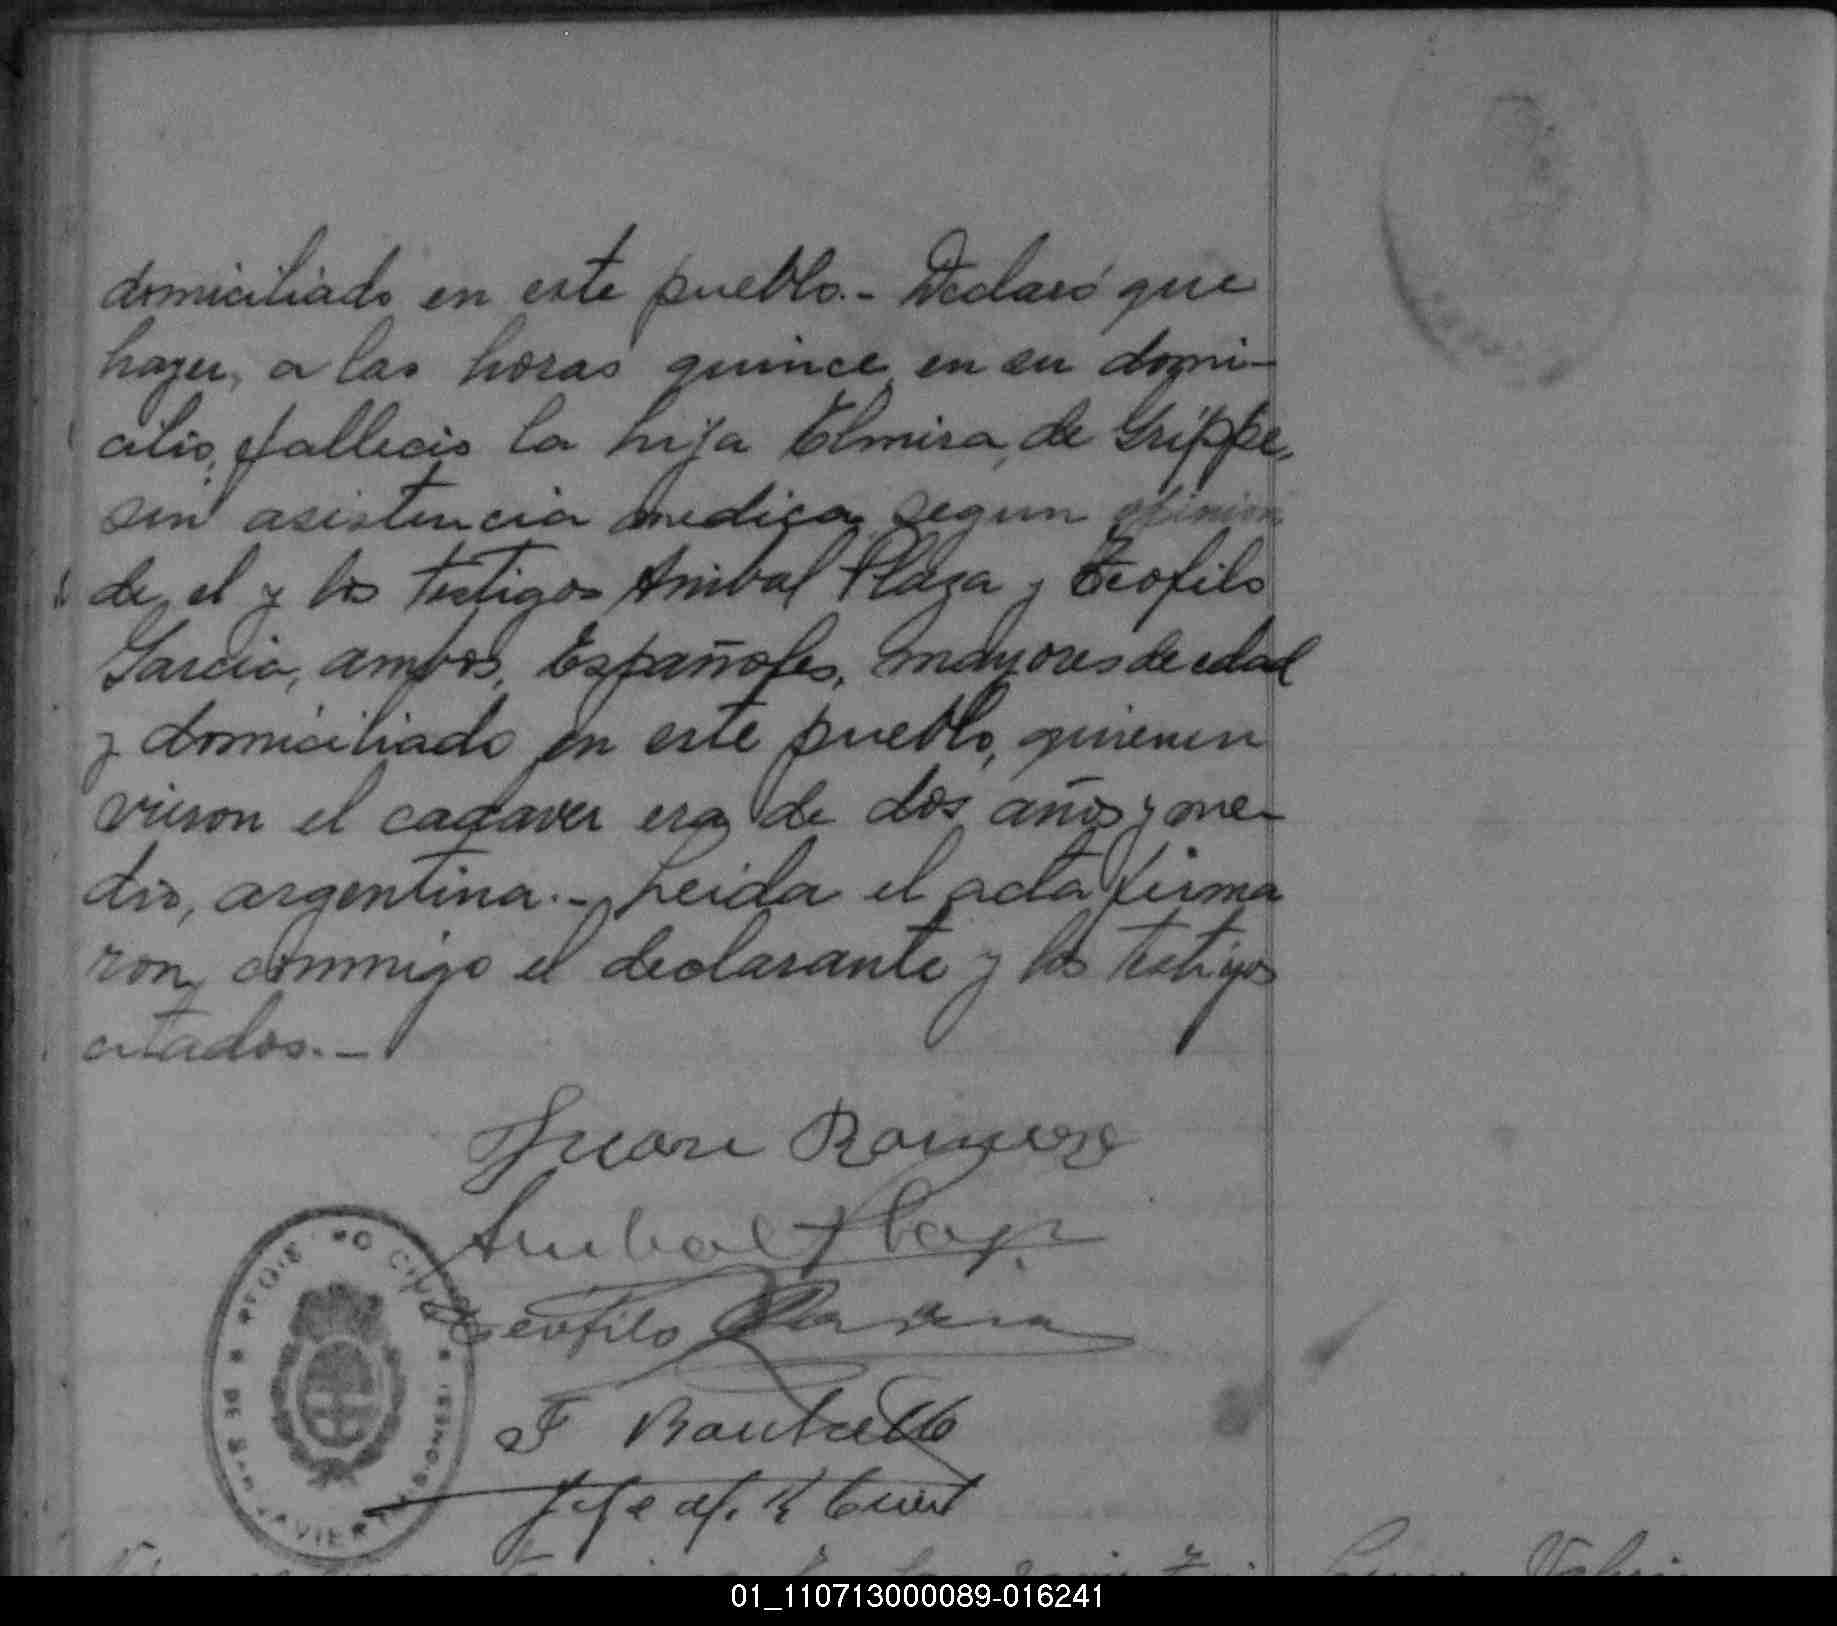 domiciliado en este pueblo.- Declaró que
hayer, a las horas quince en su domi-
cilio, fallecio la hija Elmira, de Grippe,
sin asistencia medica segun opinion
de el y los testigos Anibal Plaza y Teofilo
Garcia, ambos, Españoles, mayores de edad
y domiciliado en este pueblo, quienen
vieron el cadaver era de dos años y me-
dio, argentina.- Leida el acta firma
ron, commigo el declarante y los testigos
citados.-
Juan Romero
Anibal Plaza
Teofilo Garcia
REGISTRO CIVIL
DE SAN JAVIER MISIONES
F
Jefe del R Civil
01_110713000089-016241